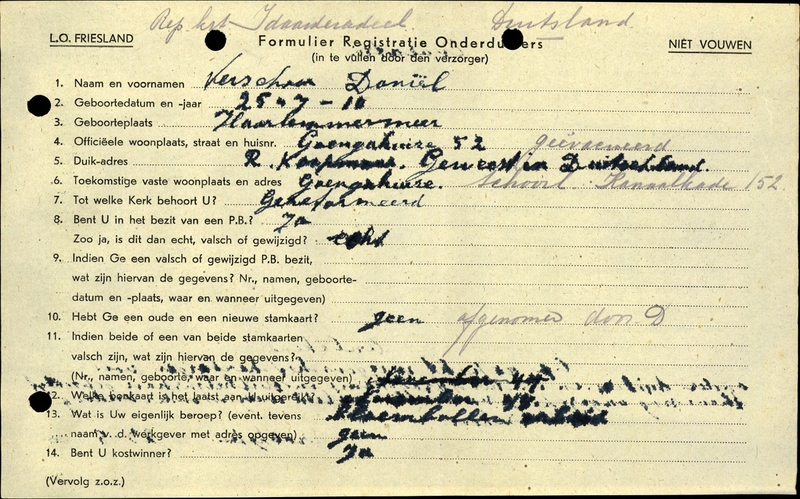 Rep. krt Idaarderadeel Duitsland
L.O. FRIESLAND
Formulier Registratie Onderduikers
NIET VOUWEN
(in te vullen door den verzorger)
1. Naam en voornamen Verschoor Daniël
2. Geboortedatum en -jaar 25-7-10
3. Geboorteplaats Haarlemmermeer
4. Officiëele woonplaats, straat en huisnr. Goengahuize 52 geëvacueerd
5. Duik-adres R. Koopmans. Geweest in Duitschland.
6. Toekomstige vaste woonplaats en adres Goengahuize. Schoorl Kanaalkade 152
7. Tot welke Kerk behoort U? Gereformeerd
8. Bent U in het bezit van een P.B.? Ja
Zoo ja, is dit dan echt, valsch of gewijzigd? echt
9. Indien Ge een valsch of gewijzigd P.B. bezit,
wat zijn hiervan de gegevens? Nr., namen, geboorte-
datum en -plaats, waar en wanneer uitgegeven)
10. Hebt Ge een oude en een nieuwe stamkaart? geen afgenomen door D
11. Indien beide of een van beide stamkaarten
valsch zijn, wat zijn hiervan de gegevens?
(Nr., namen, geboorte, waar en wanneer uitgegeven)
12. Welke bonkaart is het laatst aan U uitgereikt
13. Wat is Uw eigenlijk beroep? (event. tevens bloembollen arbeid
naam v. d. werkgever met adres opgeven) geen
14. Bent U kostwinner? Ja
(Vervolg z.o.z.)